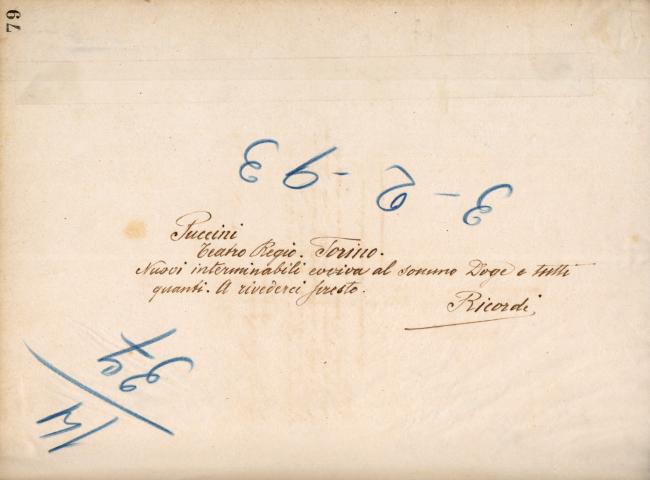 79
3-2-93
Puccini
Teatro Regio. Torino.
Nuovi interminabili evviva al sommo Doge e tutti
quanti. A rivederci presto.
Ricordi
37
14